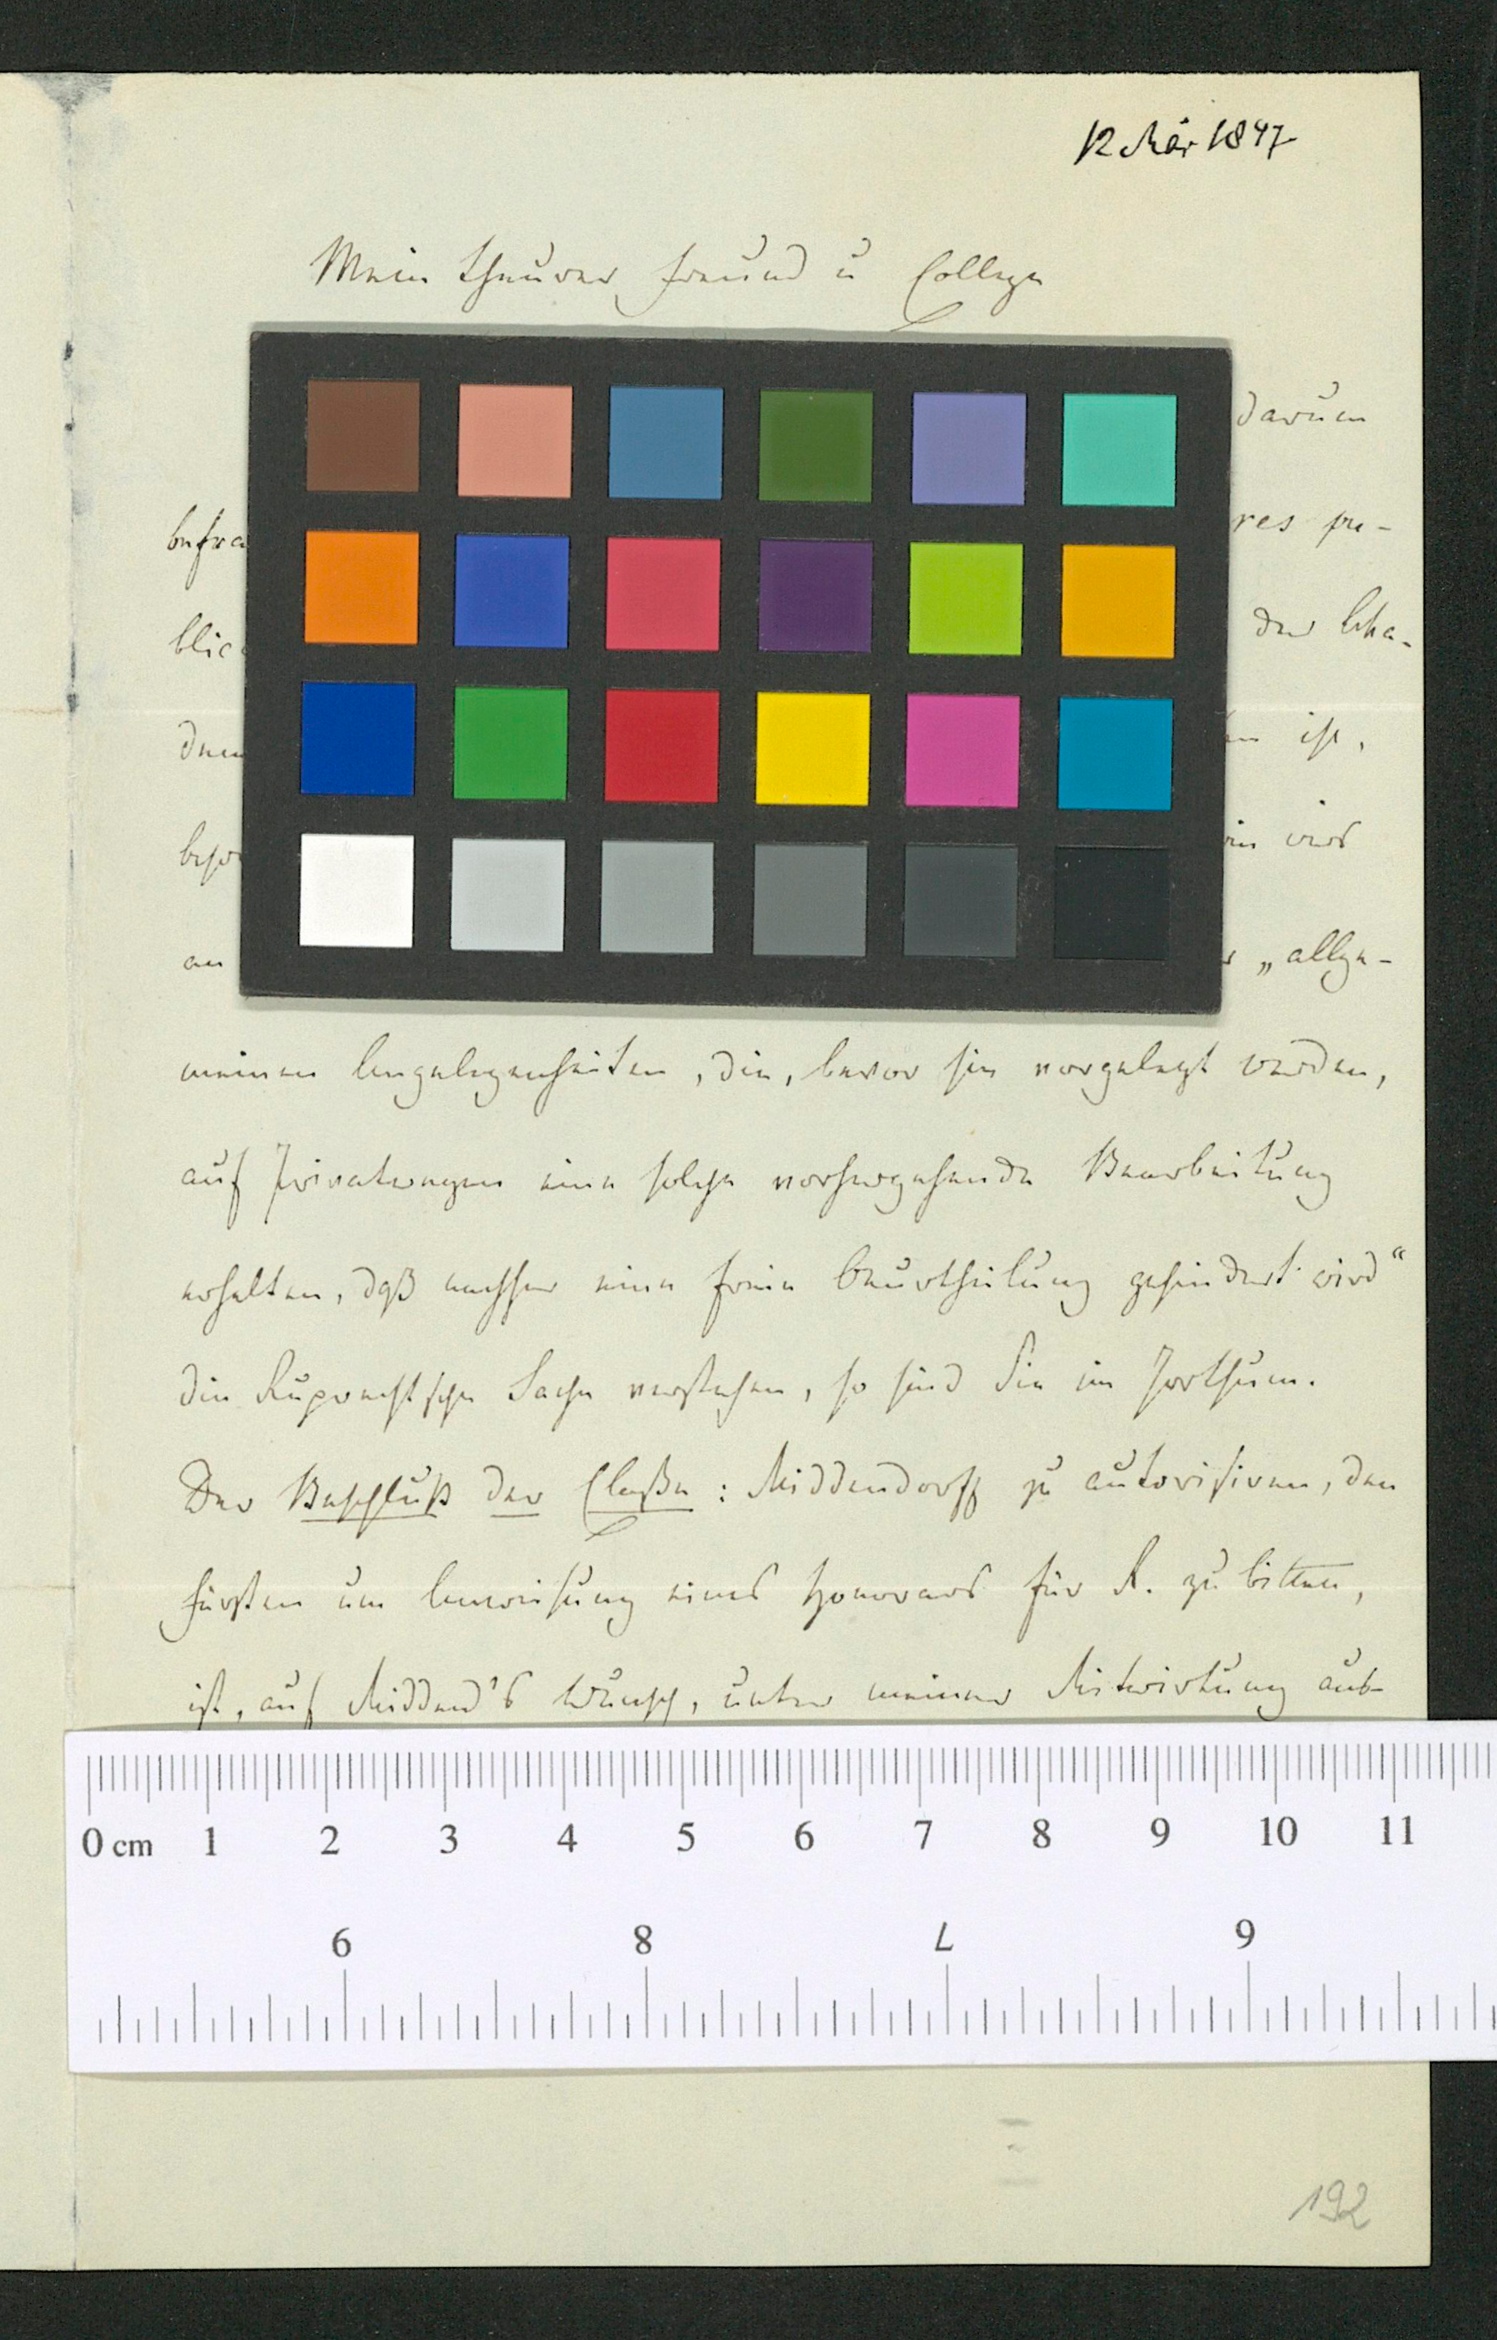 12 Mär 1847
Mein theurer Freund u College
darum
befra
res pu-
blic
der Aka-
dem
en ist,
beso
ein wird
an
„allge-
meinen Angelegenheiten, die, bevor sie vorgelegt werden,
auf Privatwegen eine solche vorhergehende Bearbeitung
erhalten, daß nachher eine freie Beurtheilung gehindert wird“
die Ruprechtsche Sache verstehen, so sind Sie im Irrthum.
Der Beschluß der Claße: Middendorff zu autorisiren, den
Fürsten um Anweisung eines Honorars für R. zu bitten,
ist, auf Middend's Wunsch, unter meiner Mitwirkung aus-
0 cm 1 2 3 4 5 6 7 8 9 10 11
6 7 8 9
192